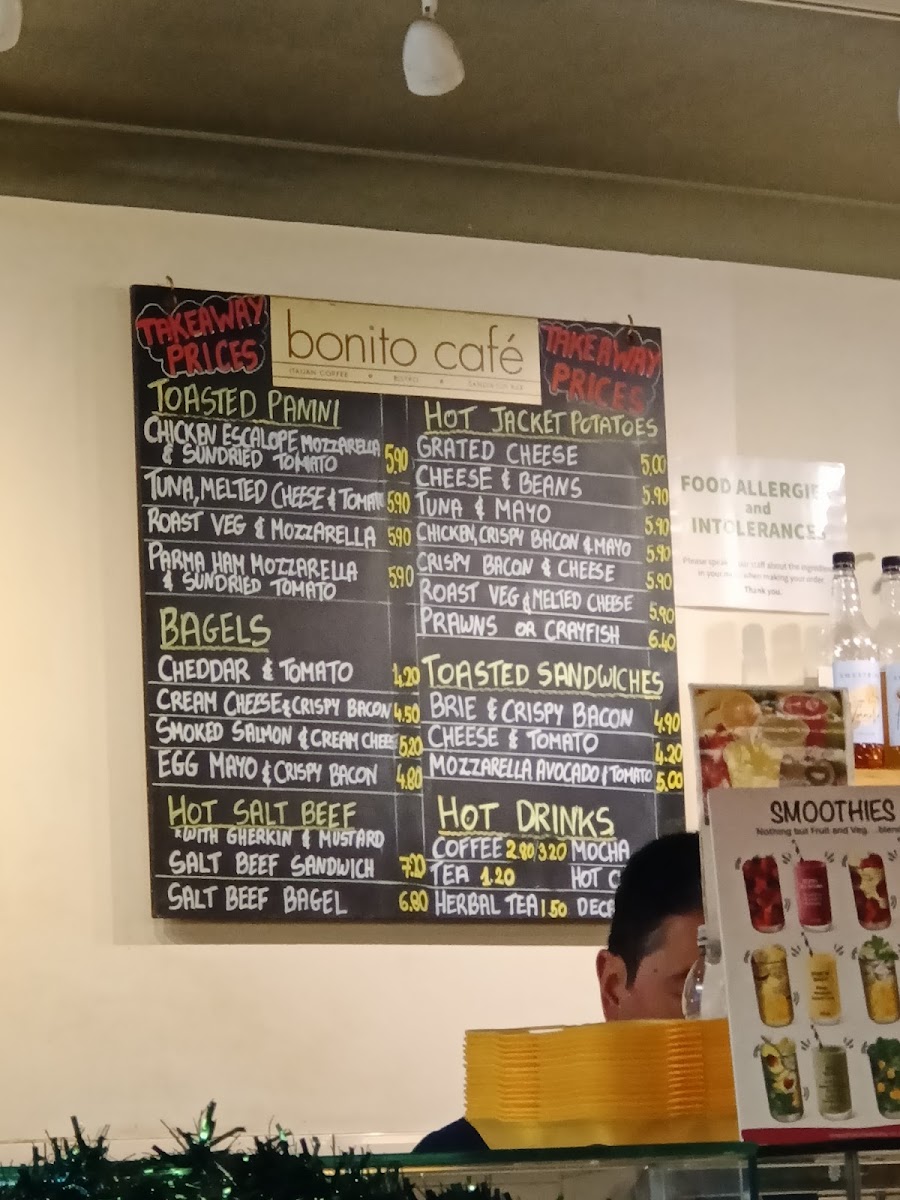 TAKEAWAY PRICES
bonito café
ITALIAN COFFEE • BISTRO • SANDWICH BAR
TAKEAWAY PRICES
TOASTED PANINI
CHICKEN ESCALOPE, MOZZARELLA
& SUNDRIED TOMATO 5.90
TUNA, MELTED CHEESE & TOMATO 5.90
ROAST VEG & MOZZARELLA 5.90
PARMA HAM MOZZARELLA
& SUNDRIED TOMATO 5.90
BAGELS
CHEDDAR & TOMATO 4.20
CREAM CHEESE & CRISPY BACON 4.50
SMOKED SALMON & CREAM CHEESE 5.20
EGG MAYO & CRISPY BACON 4.80
HOT SALT BEEF
*WITH GHERKIN & MUSTARD
SALT BEEF SANDWICH 7.20
SALT BEEF BAGEL 6.80
HOT JACKET POTATOES
GRATED CHEESE 5.00
CHEESE & BEANS 5.90
TUNA & MAYO 5.90
CHICKEN, CRISPY BACON & MAYO 5.90
CRISPY BACON & CHEESE 5.90
ROAST VEG & MELTED CHEESE 5.90
PRAWNS OR CRAYFISH 6.40
TOASTED SANDWICHES
BRIE & CRISPY BACON 4.90
CHEESE & TOMATO 4.20
MOZZARELLA AVOCADO & TOMATO 5.00
HOT DRINKS
COFFEE 2.90/3.20 MOCHA
TEA 1.20 HOT C
HERBAL TEA 1.50 DECA
FOOD ALLERGIES
and
INTOLERANCES
Please speak staff about the ingredients
in your when making your order.
Thank you.
SMOOTHIES
Nothing but Fruit and Veg. blen